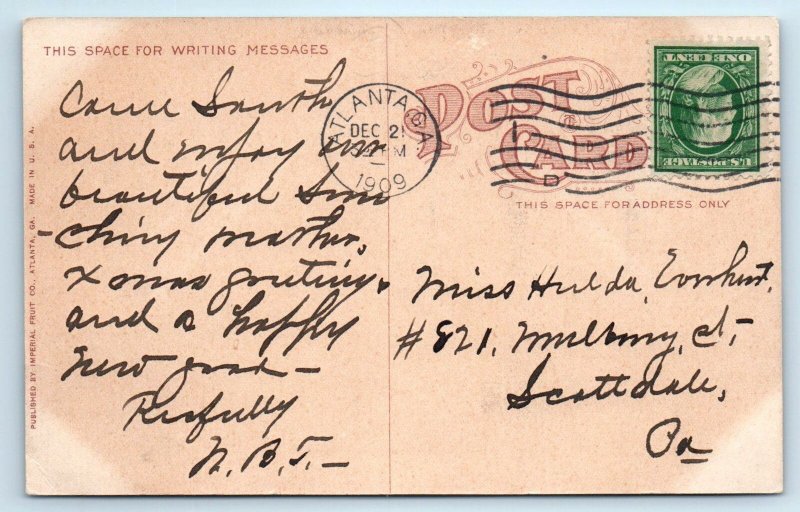 THIS SPACE FOR WRITING MESSAGES
Come South
and enjoy our
beautiful Sun
-ching
Xmas greetings
and a happy
New year -
N. B. T. -
ATLANTA GA
DEC 21
M
1909
POST
CARD
U.S. POSTAGE
ONE CENT
THIS SPACE FOR ADDRESS ONLY
Miss Hulda Everhart,
#821, Mulberry, St,
Scottdale,
Pa
PUBLISHED BY IMPERIAL FRUIT CO., ATLANTA, GA. MADE IN U. S. A.